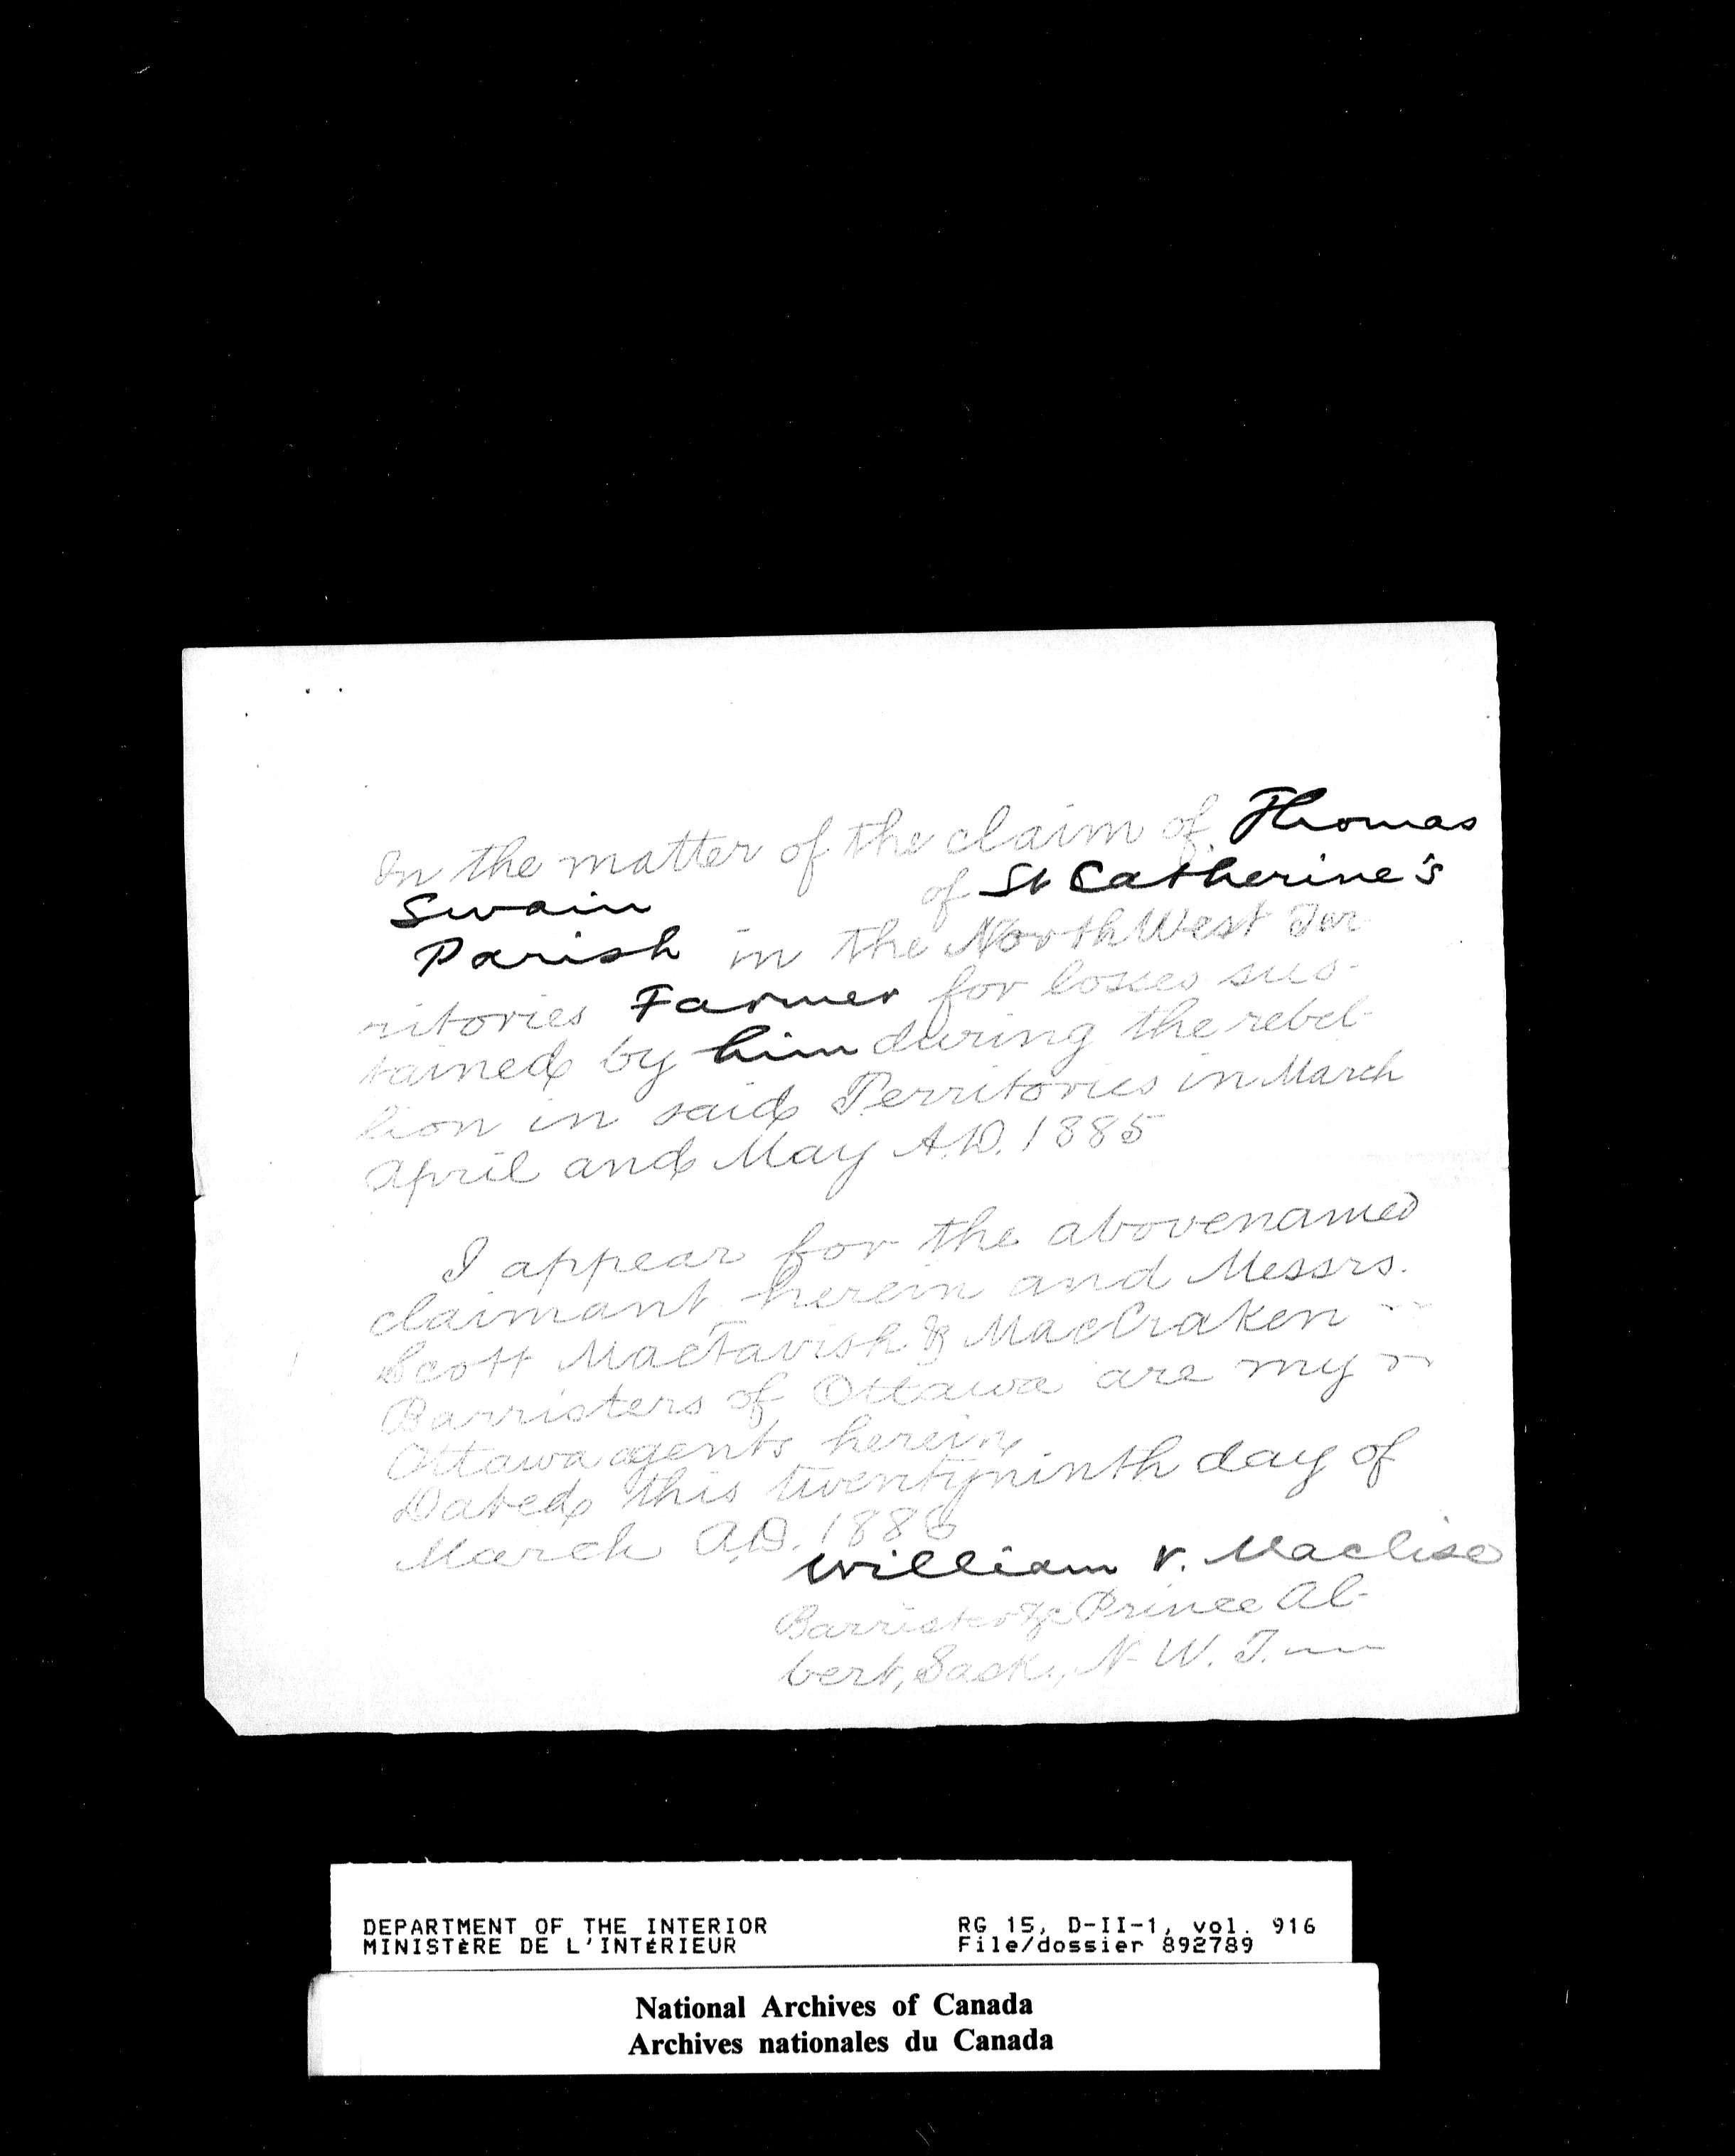 In the matter of the claim of Thomas
Swain of St Catherine's
Parish in the North West Ter
ritories Farmer for losses sus-
tained by him during the rebel-
lion in said Territories in March
April and May A.D. 1885
I appear for the abovenamed
claimant herein and Messrs.
Scott MacTavish & MacCraken
Barristers of Ottawa are my
Ottawa agents herein.
Dated this twentyninth day of
March A.D. 1886
William V. Maclise
Barrister &c Prince Al-
bert, Sask., N. W. T.
DEPARTMENT OF THE INTERIOR RG 15, D-II-1, vol. 916
MINISTÈRE DE L'INTÉRIEUR File/dossier 892789
National Archives of Canada
Archives nationales du Canada